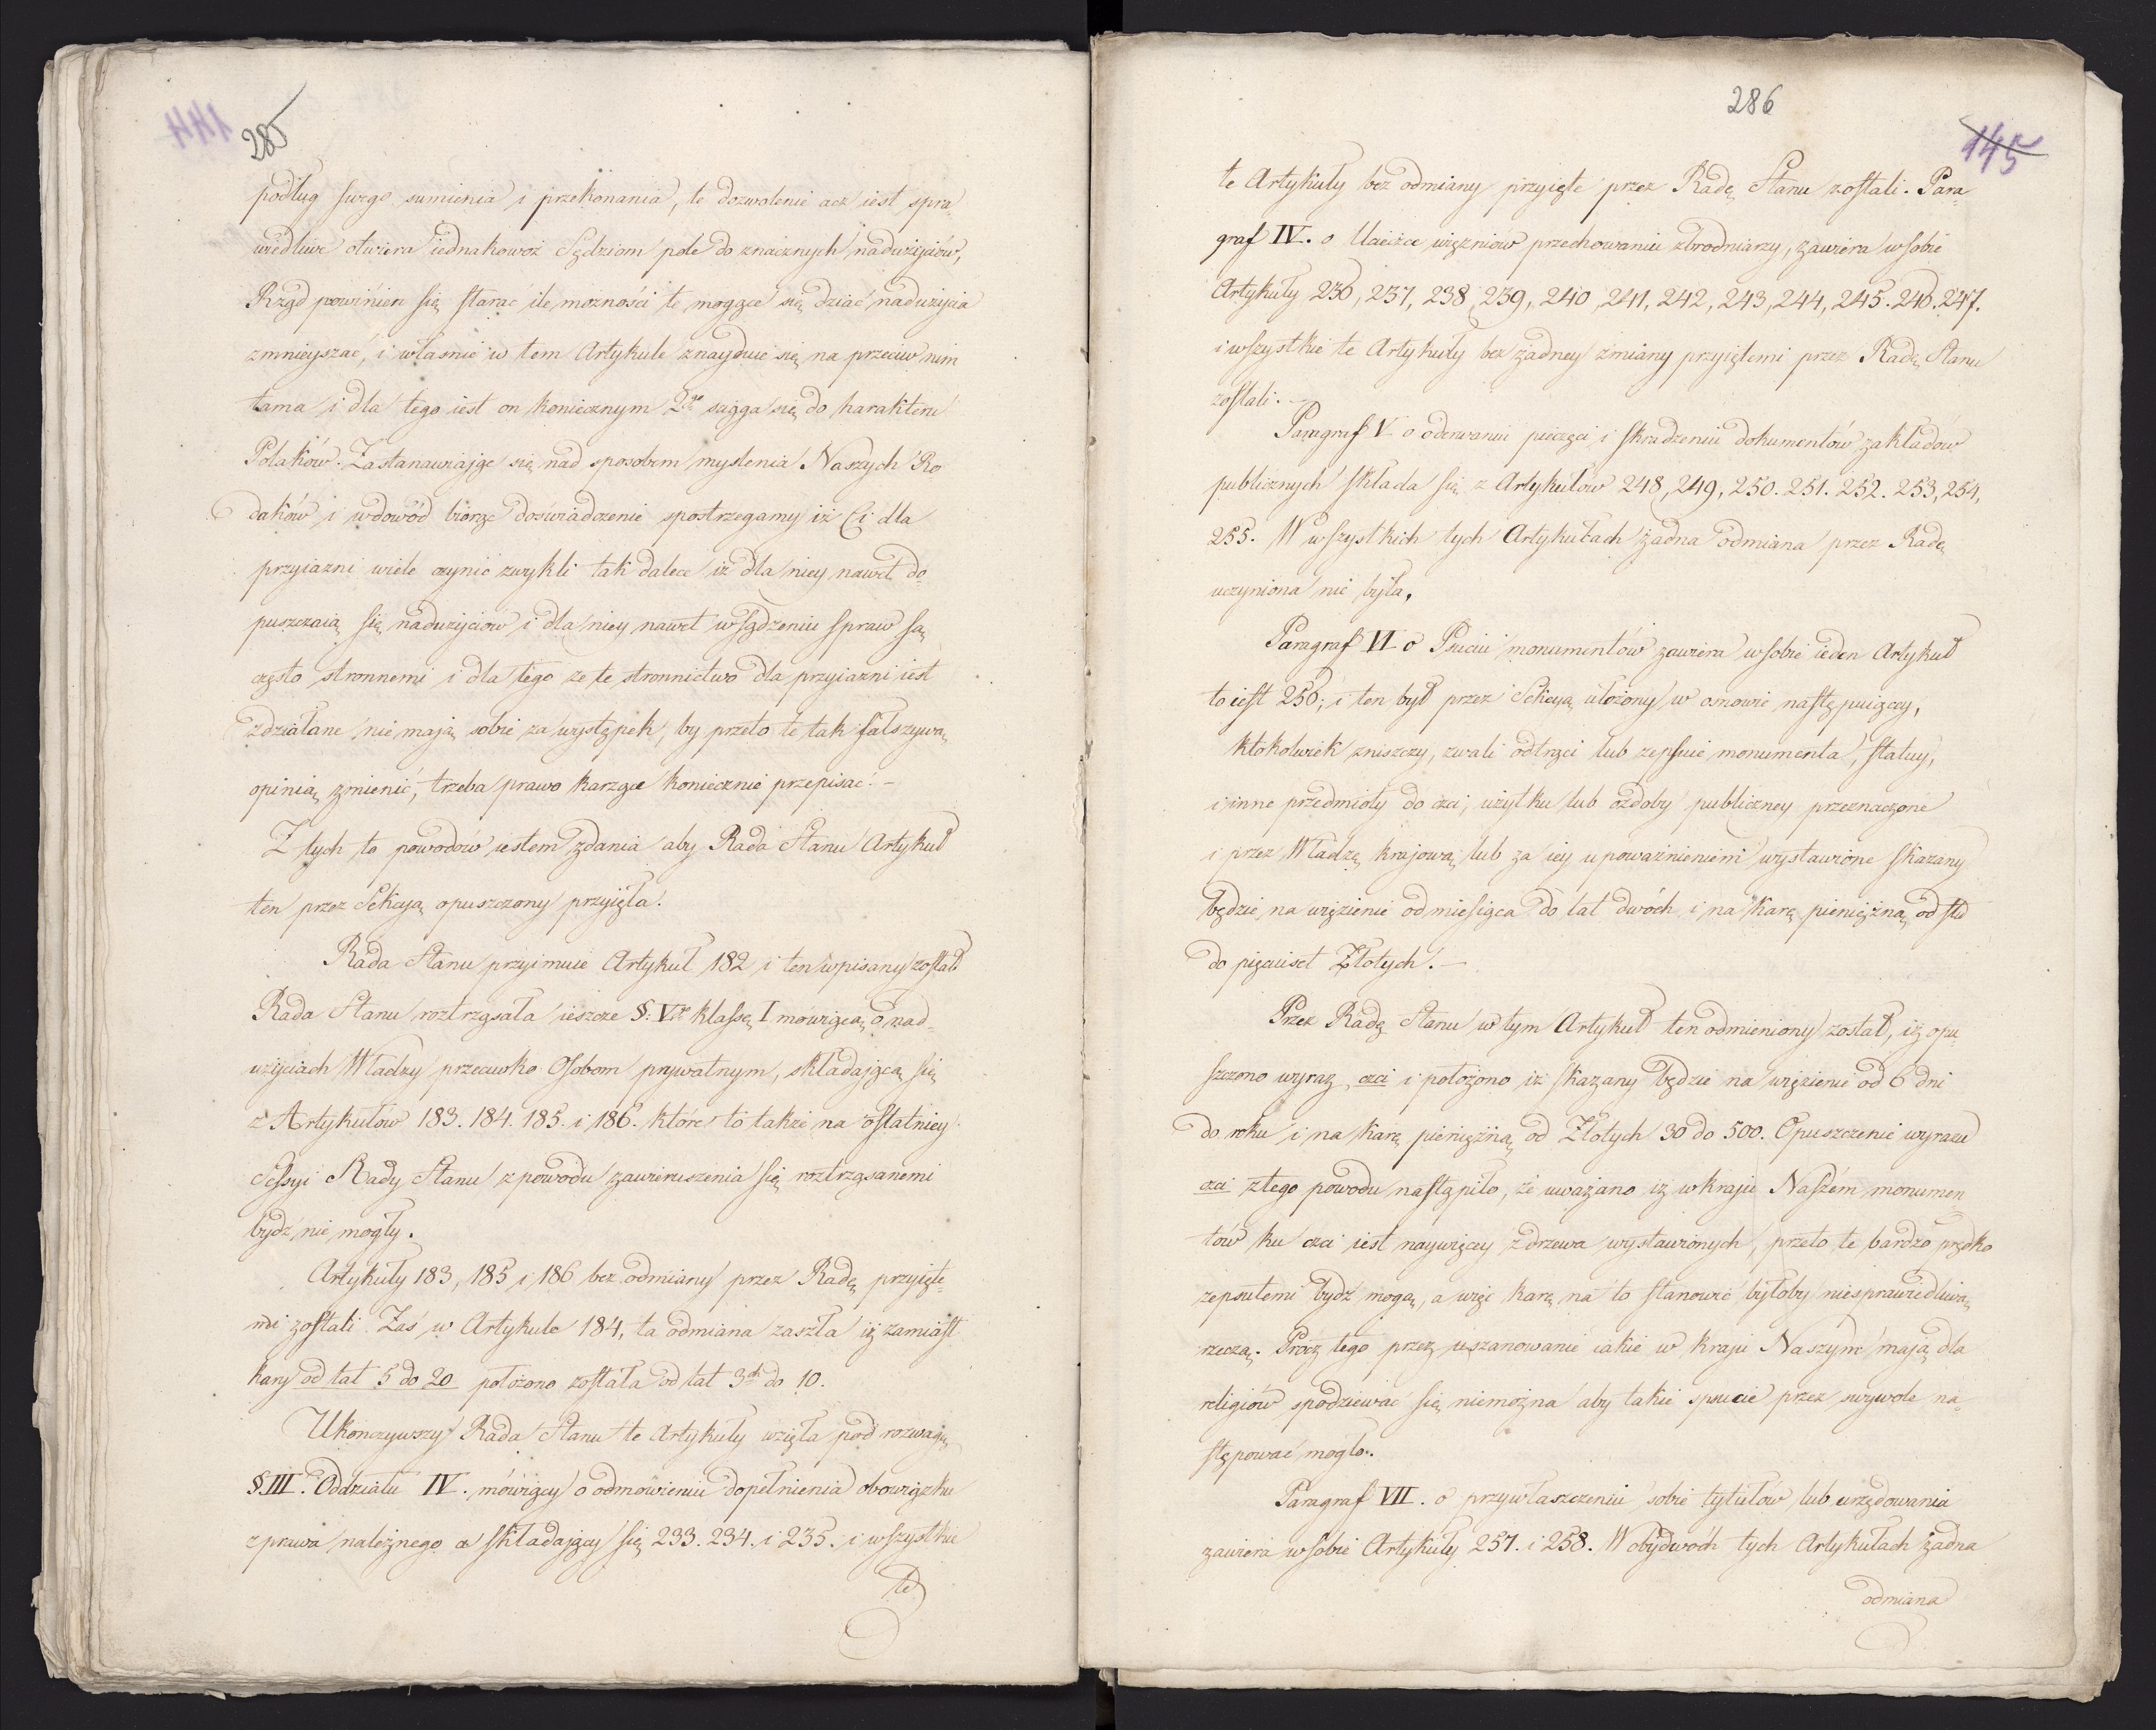 285
podług swego sumienia i przekonania, te dozwolenie acz iest spra„
wiedliwe otwiera iednakowoż Sędziom pole do znacznych nadużyciów,
Rząd powinien się starać ile możności te mogące się dziać nadużycia
zmnieyszać, i właśnie w tem Artykule znayduie się na przeciw nim
tama i dla tego iest on koniecznym 2do sciąga się do harakteru
Polaków. Zastanawiając się nad sposobem myslenia Naszych Ro
daków i w dowód biorąc doświadczenie spostrzegamy iż Ci dla
przyiazni wiele czynić zwykli tak dalece iż dla niey nawet do
puszczaią się nadużyciów i dla niey nawet w sądzeniu spraw są
często stronnemi i dla tego ze te stronnictwo dla przyiazni iest
zdziałane nie mają sobie za występek, by przeto te tak fałszywą
opinią zmienić, trzeba prawo karzące koniecznie przepisać. –
Z tych to powodów iestem zdania aby Rada Stanu Artykuł
ten przez Sekcyą opuszczony przyięła.
Rada Stanu przyimuie Artykuł 182 i ten wpisany został
Rada Stanu roztrząsała ieszcze §: V. klassę I mówiącą o nad„
użyciach Władzy przeciwko Osobom prywatnym, składającą się
z Artykułów 183. 184. 185. i 186. które to także na ostatniey
Sessyi Rady Stanu z powodu zawieruszenia się roztrząsanemi
bydź nie mogły.
Artykuły 183, 185 i 186 bez odmiany przez Radę przyięte„
mi zostali. Zaś w Artykule 184, ta odmiana zaszła iż zamiast
kary od lat 5 do 20 położono została od lat 3ch do 10.
Ukończywszy Rada Stanu te Artykuły wzięła pod rozwagę
§ III. Oddziału IV. mówiący o odmówieniu dopełnienia obowiązku
z prawa należnego a składający się 233. 234. i 235. i wszystkie
te
286
145
te Artykuły bez odmiany przyięte przez Radę Stanu zostali. Para„
graf IV. o Ucieczce więzniów przechowaniu zbrodniarzy, zawiera w sobie
Artykuły 236, 237, 238, 239, 240, 241, 242, 243, 244, 245. 246. 247.
i wszystkie te Artykuły bez żadney zmiany przyiętemi przez Radę Stanu
zostali. –
Paragraf V. o oderwaniu pieczęci i skradzeniu dokumentów zakładów
publicznych składa się z Artykułów 248, 249, 250. 251. 252. 253, 254,
255. W wszystkich tych Artykułach żadna odmiana przez Radę
uczyniona nie była,
Paragraf VI o Psuciu monumentów zawiera w sobie ieden Artykuł
to iest 256; i ten był przez Sekcyą ułożony w osnowie następuiącey,
ktokolwiek zniszczy, zwali odtrąci lub zepsuie monumenta, statuy,
i inne przedmioty do czci, użytku lub ozdoby publiczney przeznaczone
i przez Władzę krajową lub za iey upoważnieniem wystawione skazany
będzie na więzienie od miesiąca do lat dwóch i na karę pieniężną od sto
do pięciuset Złotych. –
Przez Radę Stanu w tym Artykuł ten odmieniony został, iż opu„
szczono wyraz czci i położono iż skazany będzie na więzienie od 6 dni
do roku i na karę pieniężną od Złotych 30 do 500. Opuszczenie wyrazu
czci z tego powodu nastąpiło, że uważano iż w kraju Naszém monumen
tów ku czci iest naywięcey z drzewa wystawionych, przeto te bardzo prędko
zepsutemi bydź mogą, a więc karę na to stanowić byłoby niesprawiedliwą
rzeczą. Prócz tego przez uszanowanie iakie w kraju Naszym mają dla
religiów spodziewać się niemożna aby takie spsucie przez swywole na„
stępować mogło.
Paragraf VII. o przywłaszczeniu sobie tytułów lub urzędowania
zawiera w sobie Artykuły 257. i 258. W obydwóch tych Artykułach żadna
odmiana